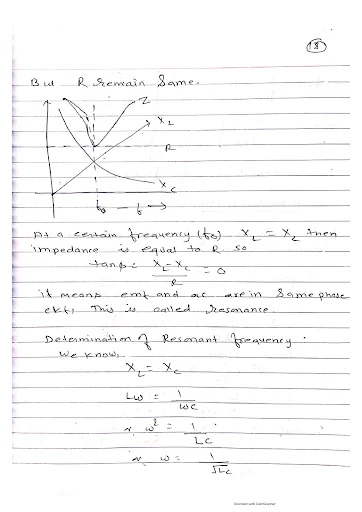 18
But R remain Same.
Z
X_L
R
X_C
f₀ — f →
At a certain frequency (f₀) X_L = X_C then
impedance is equal to R. so
tanφ = (X_L - X_C) / R = 0
it means emf and ac are in Same phase
ckt, This is called resonance.
Determination of Resonant frequency.
We know,
X_L = X_C
Lω = 1 / ωC
or ω² = 1 / LC
or ω = 1 / √LC
Scanned with CamScanner